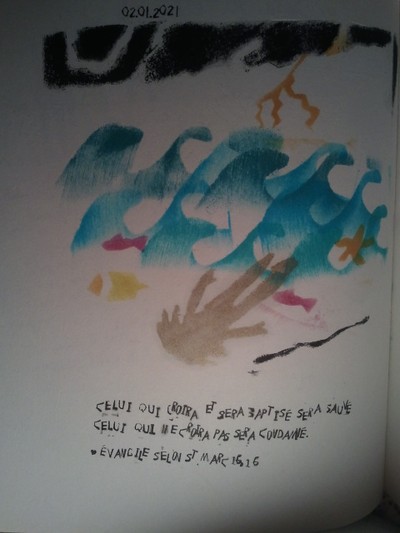 02.01.2021
CELUI QUI CROIRA ET SERA BAPTISÉ SERA SAUVÉ
CELUI QUI NE CROIRA PAS SERA CONDAMNÉ.
ÉVANGILE SELON ST MARC 16,16